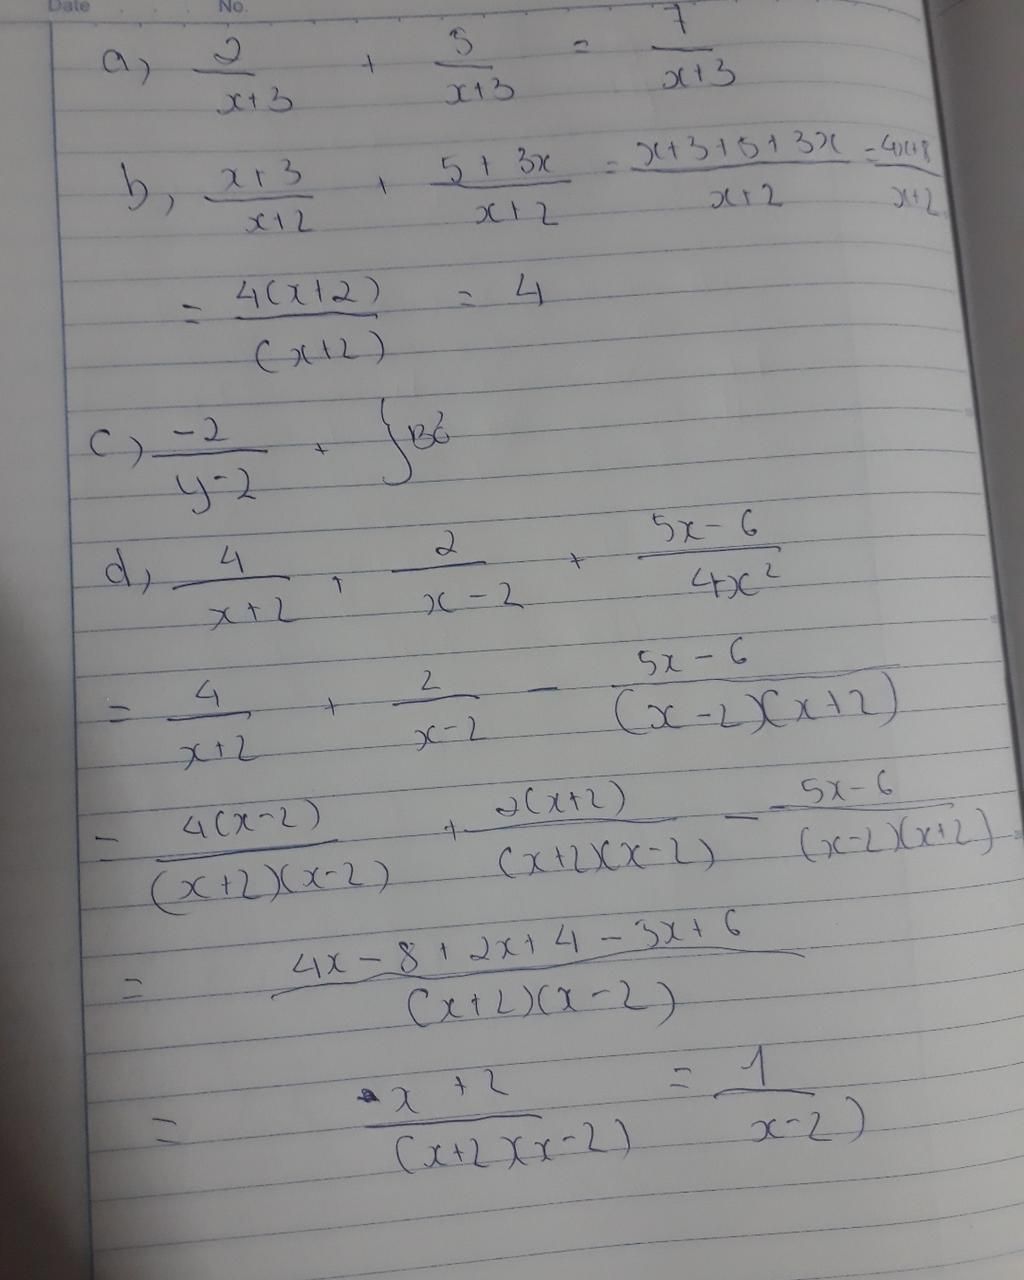 Date No.
a, 2/(x+3) + 5/(x+3) = 7/(x+3)
b, (x+3)/(x+2) + (5+3x)/(x+2) = (x+3+5+3x)/(x+2) = (4x+8)/(x+2)
= 4(x+2)/(x+2) = 4
c) -2/(y-2) +
d, 4/(x+2) + 2/(x-2) + (5x-6)/(4x²)
= 4/(x+2) + 2/(x-2) - (5x-6)/((x-2)(x+2))
= 4(x-2)/((x+2)(x-2)) + 2(x+2)/((x+2)(x-2)) - (5x-6)/((x-2)(x+2))
= (4x-8+2x+4-3x+6)/((x+2)(x-2))
= (x+2)/((x+2)(x-2)) = 1/(x-2)